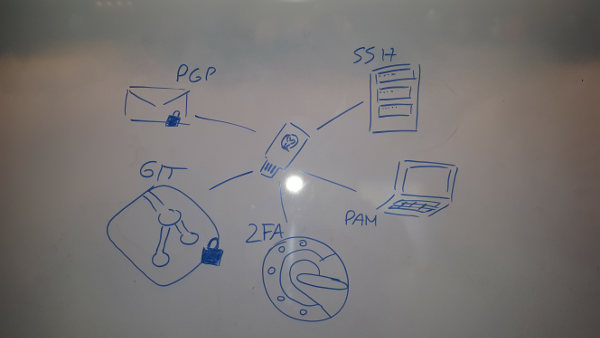 PGP
SSH
GIT
PAM
2FA